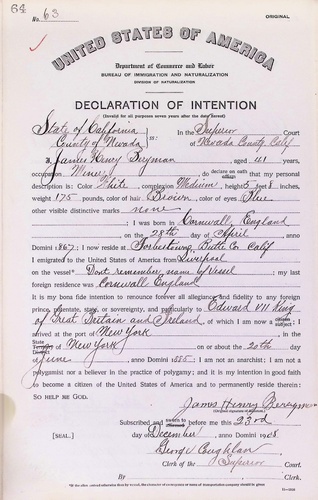 64
No. 63
ORIGINAL
UNITED STATES OF AMERICA
Department of Commerce and Labor
BUREAU OF IMMIGRATION AND NATURALIZATION
DIVISION OF NATURALIZATION
DECLARATION OF INTENTION
(Invalid for all purposes seven years after the date hereof)
State of California
County of Nevada ss:
In the Superior Court
of Nevada County Calif
I, James Henry Berryman, aged 41 years,
occupation Miner, do declare on oath that my personal
description is: Color White, complexion Medium, height 5 feet 8 inches,
weight 175 pounds, color of hair Brown, color of eyes Blue
other visible distinctive marks none
I was born in Cornwall, England
on the 28th day of April, anno
Domini 1867; I now reside at Forbestown Butte Co Calif
I emigrated to the United States of America from Liverpool
on the vessel Dont remember name of Vessel; my last
foreign residence was Cornwall England
It is my bona fide intention to renounce forever all allegiance and fidelity to any foreign
prince, potentate, state, or sovereignty, and particularly to Edward VII King
of Great Britain and Ireland, of which I am now a subject; I
arrived at the port of New York, in the
State
Territory
District of New York on or about the 20th day
of June, anno Domini 1885; I am not an anarchist; I am not a
polygamist nor a believer in the practice of polygamy; and it is my intention in good faith
to become a citizen of the United States of America and to permanently reside therein:
SO HELP ME GOD.
James Henry Berryman
(Original signature of declarant.)
Subscribed and sworn to before me this 23rd
[SEAL.] day of December, anno Domini 1908.
George Coughlan
Clerk of the Superior Court.
By, Deputy Clerk.